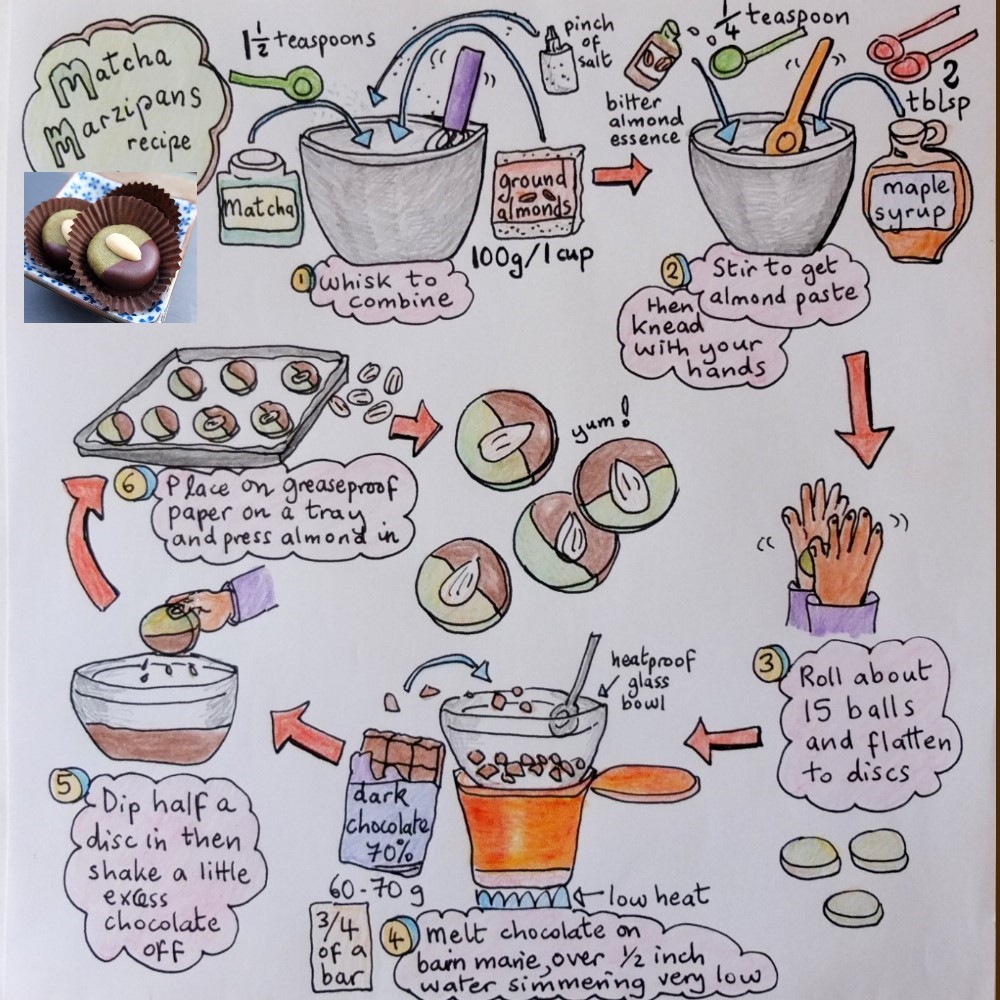 Matcha
Marzipans
recipe
1 1/2 teaspoons
pinch
of
salt
Matcha
ground
almonds
100g/1 cup
1 Whisk to
combine
bitter
almond
essence
1/4 teaspoon
2
tblsp
maple
syrup
2 Stir to get
almond paste
then
knead
with your
hands
3 Roll about
15 balls
and flatten
to discs
heatproof
glass
bowl
dark
chocolate
70%
60-70 g
3/4
of a
bar
low heat
4 melt chocolate on
bain marie, over 1/2 inch
water simmering very low
5 Dip half a
disc in then
shake a little
excess
chocolate
off
6 Place on greaseproof
paper on a tray
and press almond in
yum!